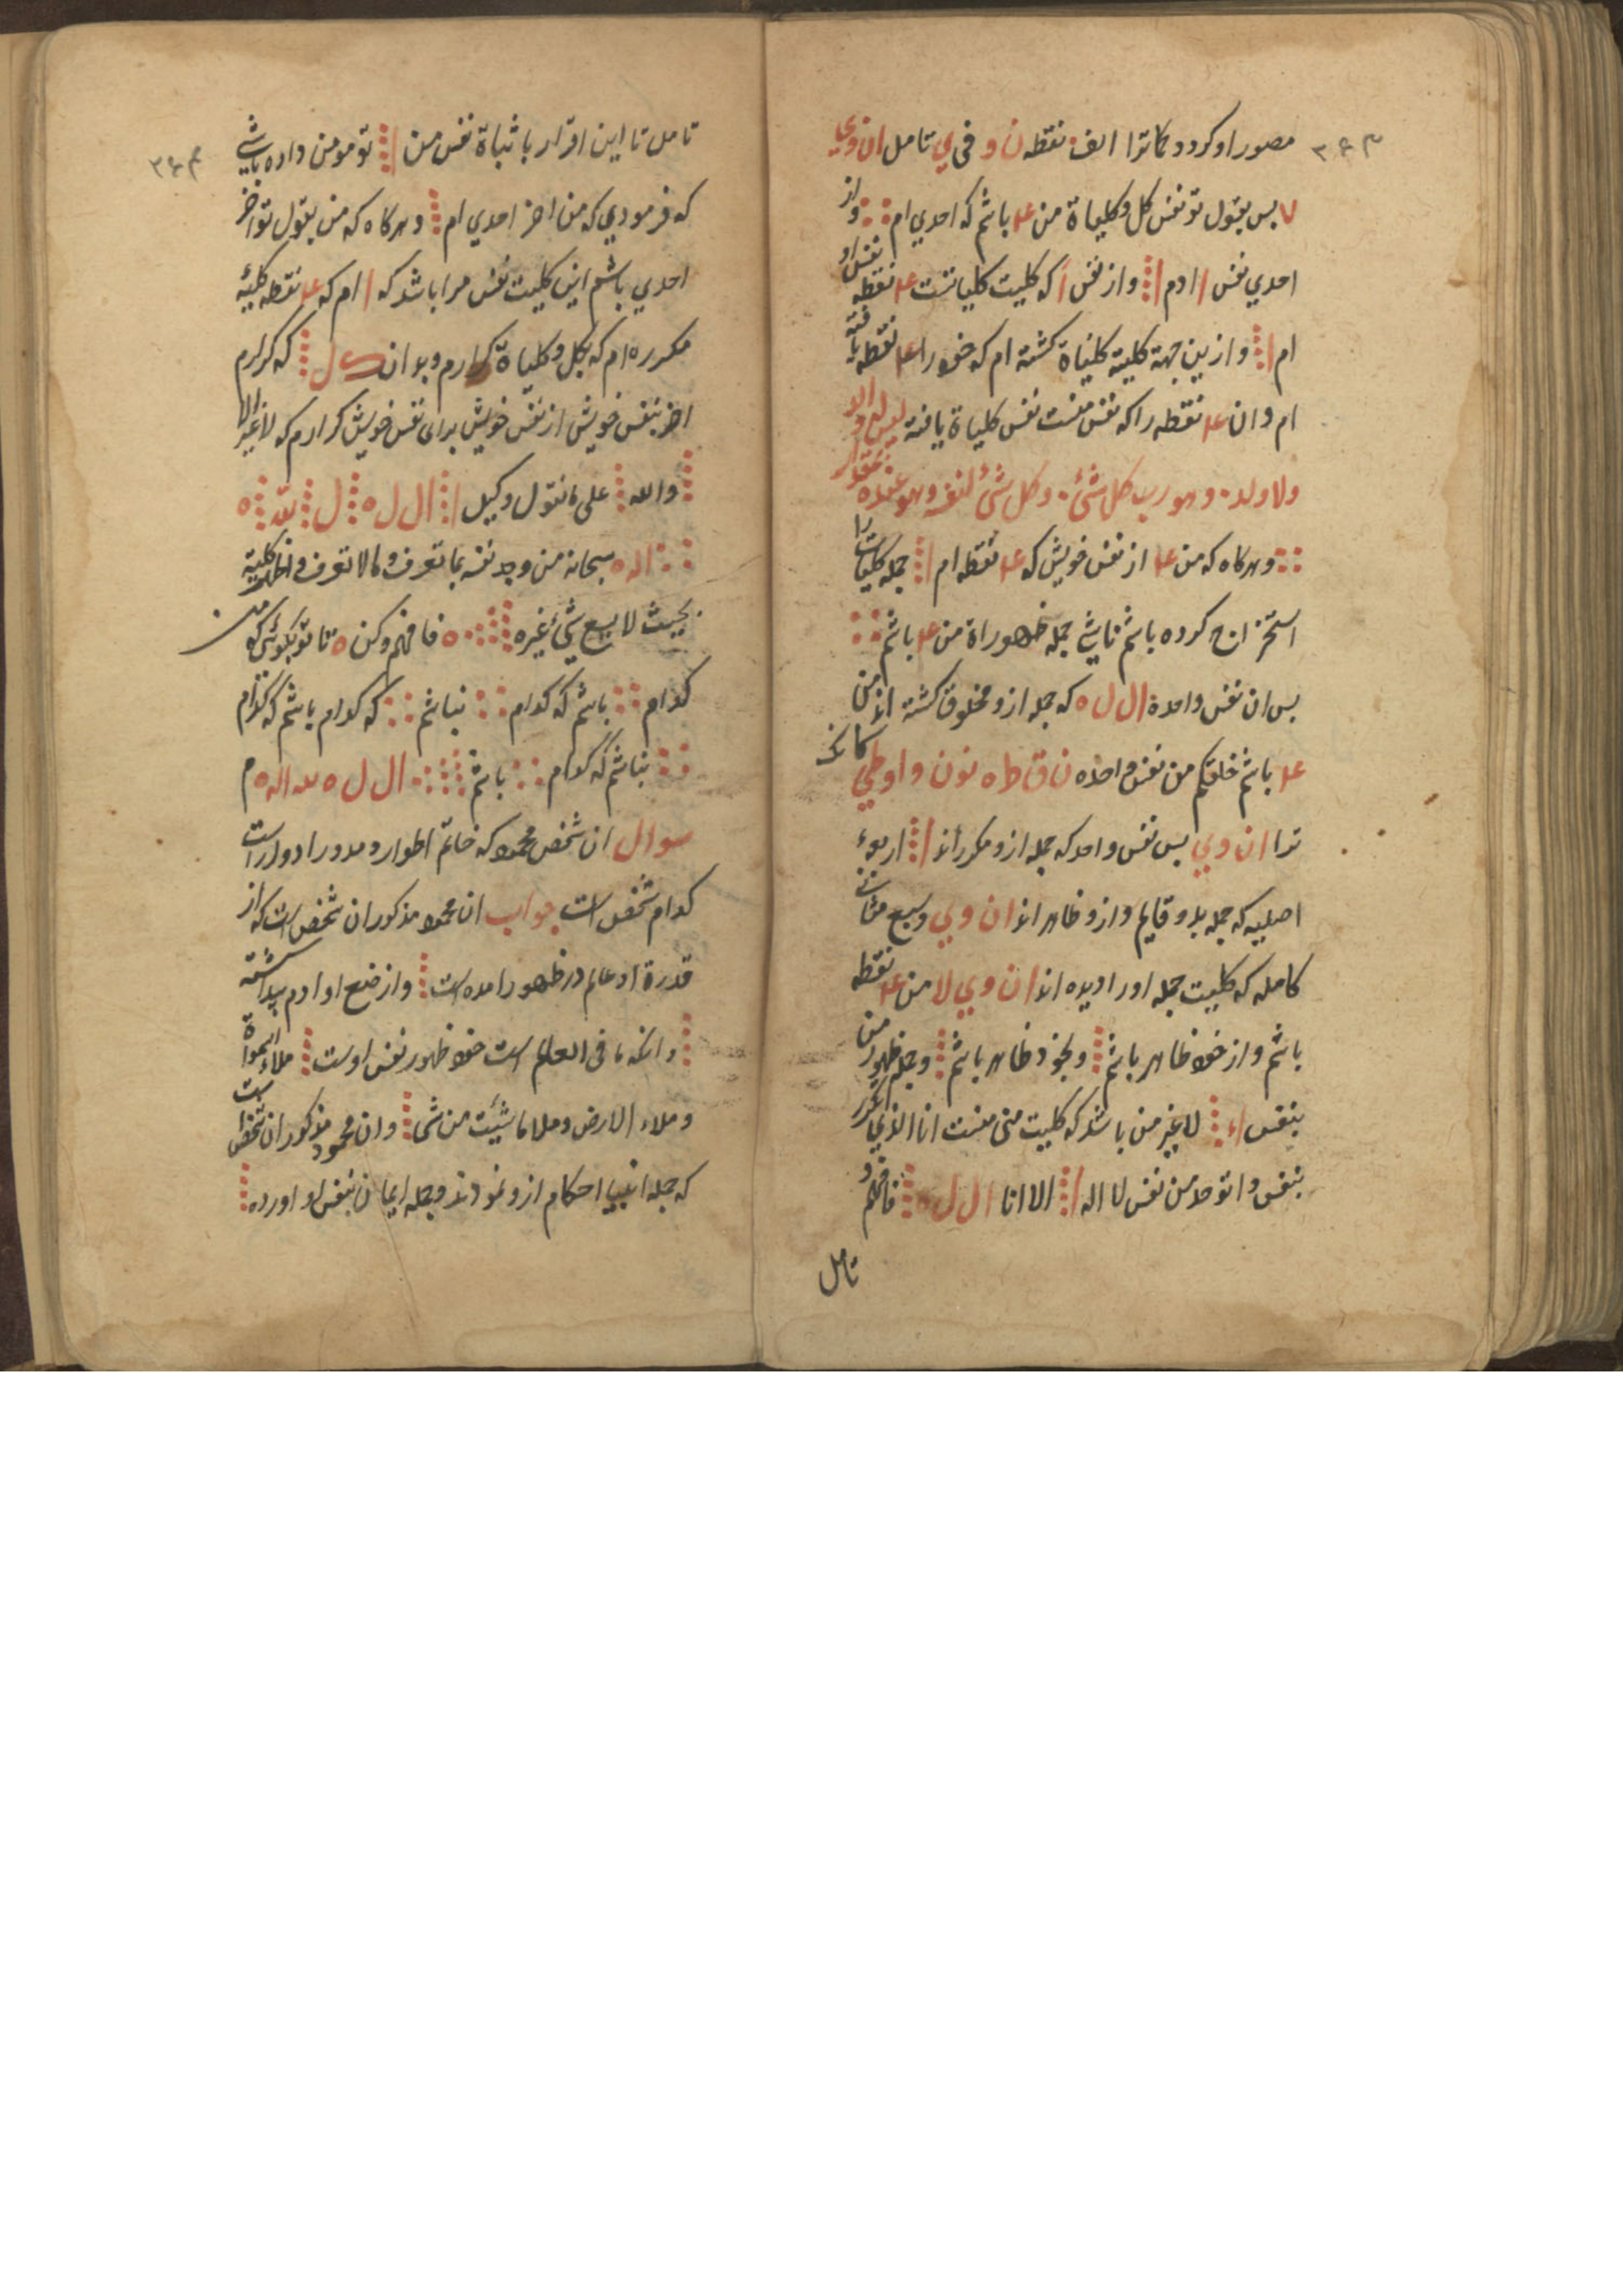 ۳۶۳
مصور او کردد کما ترا الف نقطه ن و فی ي تامل ان وي
۷ بس بقول تو نفس کل و کلیاة من ۴ باشم که احدي ام و از
احدي نفس ا ادم ا و از نفس ا که کلیت کلیاتست ۴ نقطه نفس او
ام ا و ازین جهة کلیة کلیاة کشته ام که خود را ۴ نقطه یافته
ام و ان ۴ نقطه را که نفس منست نفس کلیاة یافته لیس له والد
ولا ولد و هو رب کل شئ و کل شئ لنفسه و هو عنده بمقدار
و هرکاه که من ۴ از نفس خویش که ۴ نقطه ام ا جمله کلیات را
استخراج کرده باشم ناشي جمله ظهوراة من ۴ باشم
بس ان نفس واحدة ال ل ه که جمله ازو مخلوق کشته اند من
۴ باشم خلقکم من نفس واحده ن ق ط ه نون و او طي کاند
ترا ان و ي بس نفس واحد که جمله ازو مکرر اند ا اربعهء
اصلیه که جمله بدو قایم و ازو ظاهر اند ان و ي و سبع مثاني
کامله که کلیت جمله اورا دیده اند ان و ي لا من ۴ نقطه
باشم و از خود ظاهر باشم و بخود ظاهر باشم و جمله ظهور من
بنفس ا لا غیر من باشد که کلیت منی منست انا الذي تکرر
بنفس و اتوحد من نفس لا اله ا الا انا ال ل ه فافهم و
تامل
۳۶۴
تامل تا این اقرار باثباة نفس من ا تو مومن داده باشي
که فرمودي که من اخر احدي ام و هرکاه که من بقول تو اخر
احدي باشم این کلیت نفس مرا باشد که ا ام که ۴ نقطه کلیهٔ
مکرره ام که بکل و کلیاة کرارم و بدان ک ل که کرارم
اخر بنفس خویش از نفس خویش براي نفس خویش کرارم که لا غیر الا
والله علی ما نقول وکیل ا ال ل ه ل لله ه
اله سبحانه من وجد نفسه بما تعرف و ما لا تعرف و کلیة
بحیث لا یسع شئ غیره ه فافهم و کن ه تا تو بکوئی که من
کدام باشم که کدام نباشم که کدام باشم که کدام
نباشم که کدام باشم ال ل ه لله اله ه م
سوال ان شخص محمود که خاتم اطوار و مدور ادوار است
کدام شخص است جواب ان محمود مذکور ان شخص است که از
قدرة او عالم در ظهور امده است و از صنع او ادم پیدا کشته
و انکه ما في العالم است خود ظهور نفس اوست ملاء السمواة
و ملاء الارض و ملاء ما شیئت من شئ و ان محمود مذکور ان شخص است
که جمله انبیا احکام ازو نمودند و جمله ایمان بنفس او اورده